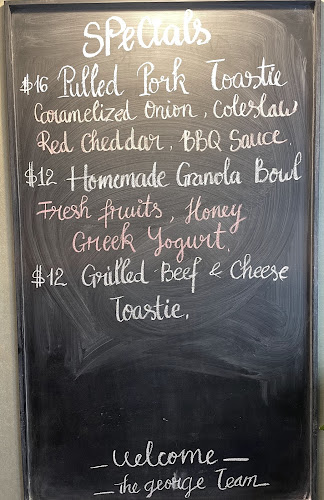 Specials
$16 Pulled Pork Toastie
Caramelized Onion, Coleslaw
Red Cheddar, BBQ Sauce.
$12 Homemade Granola Bowl
Fresh fruits, Honey
Greek Yogurt.
$12 Grilled Beef & Cheese
Toastie.
_ Welcome _
_ The george Team _